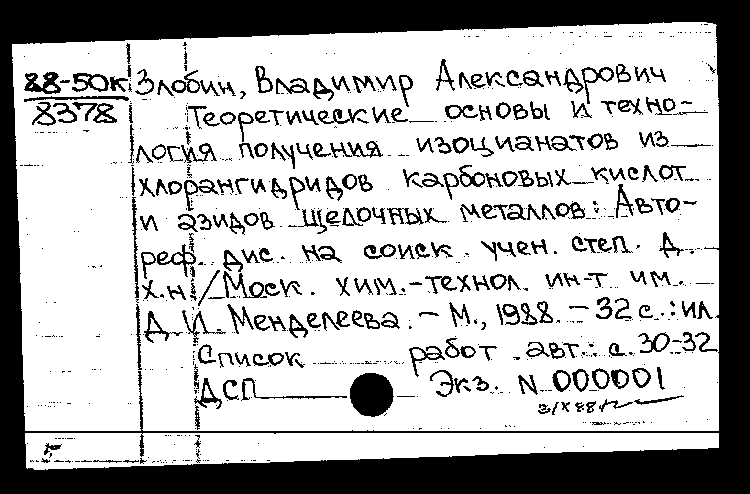 88-50к Злобин, Владимир Александрович
8378 Теоретические основы и техно-
логия получения изоцианатов из
хлорангидридов карбоновых кислот
и азидов щелочных металлов: Авто-
реф. дис. на соиск. учен. степ. д.
х.н. / Моск. хим.-технол. ин-т им.
Д. И. Менделеева. - М., 1988. - 32 с.: ил.
Список работ авт.: с. 30-32
ДСП Экз. N 000001